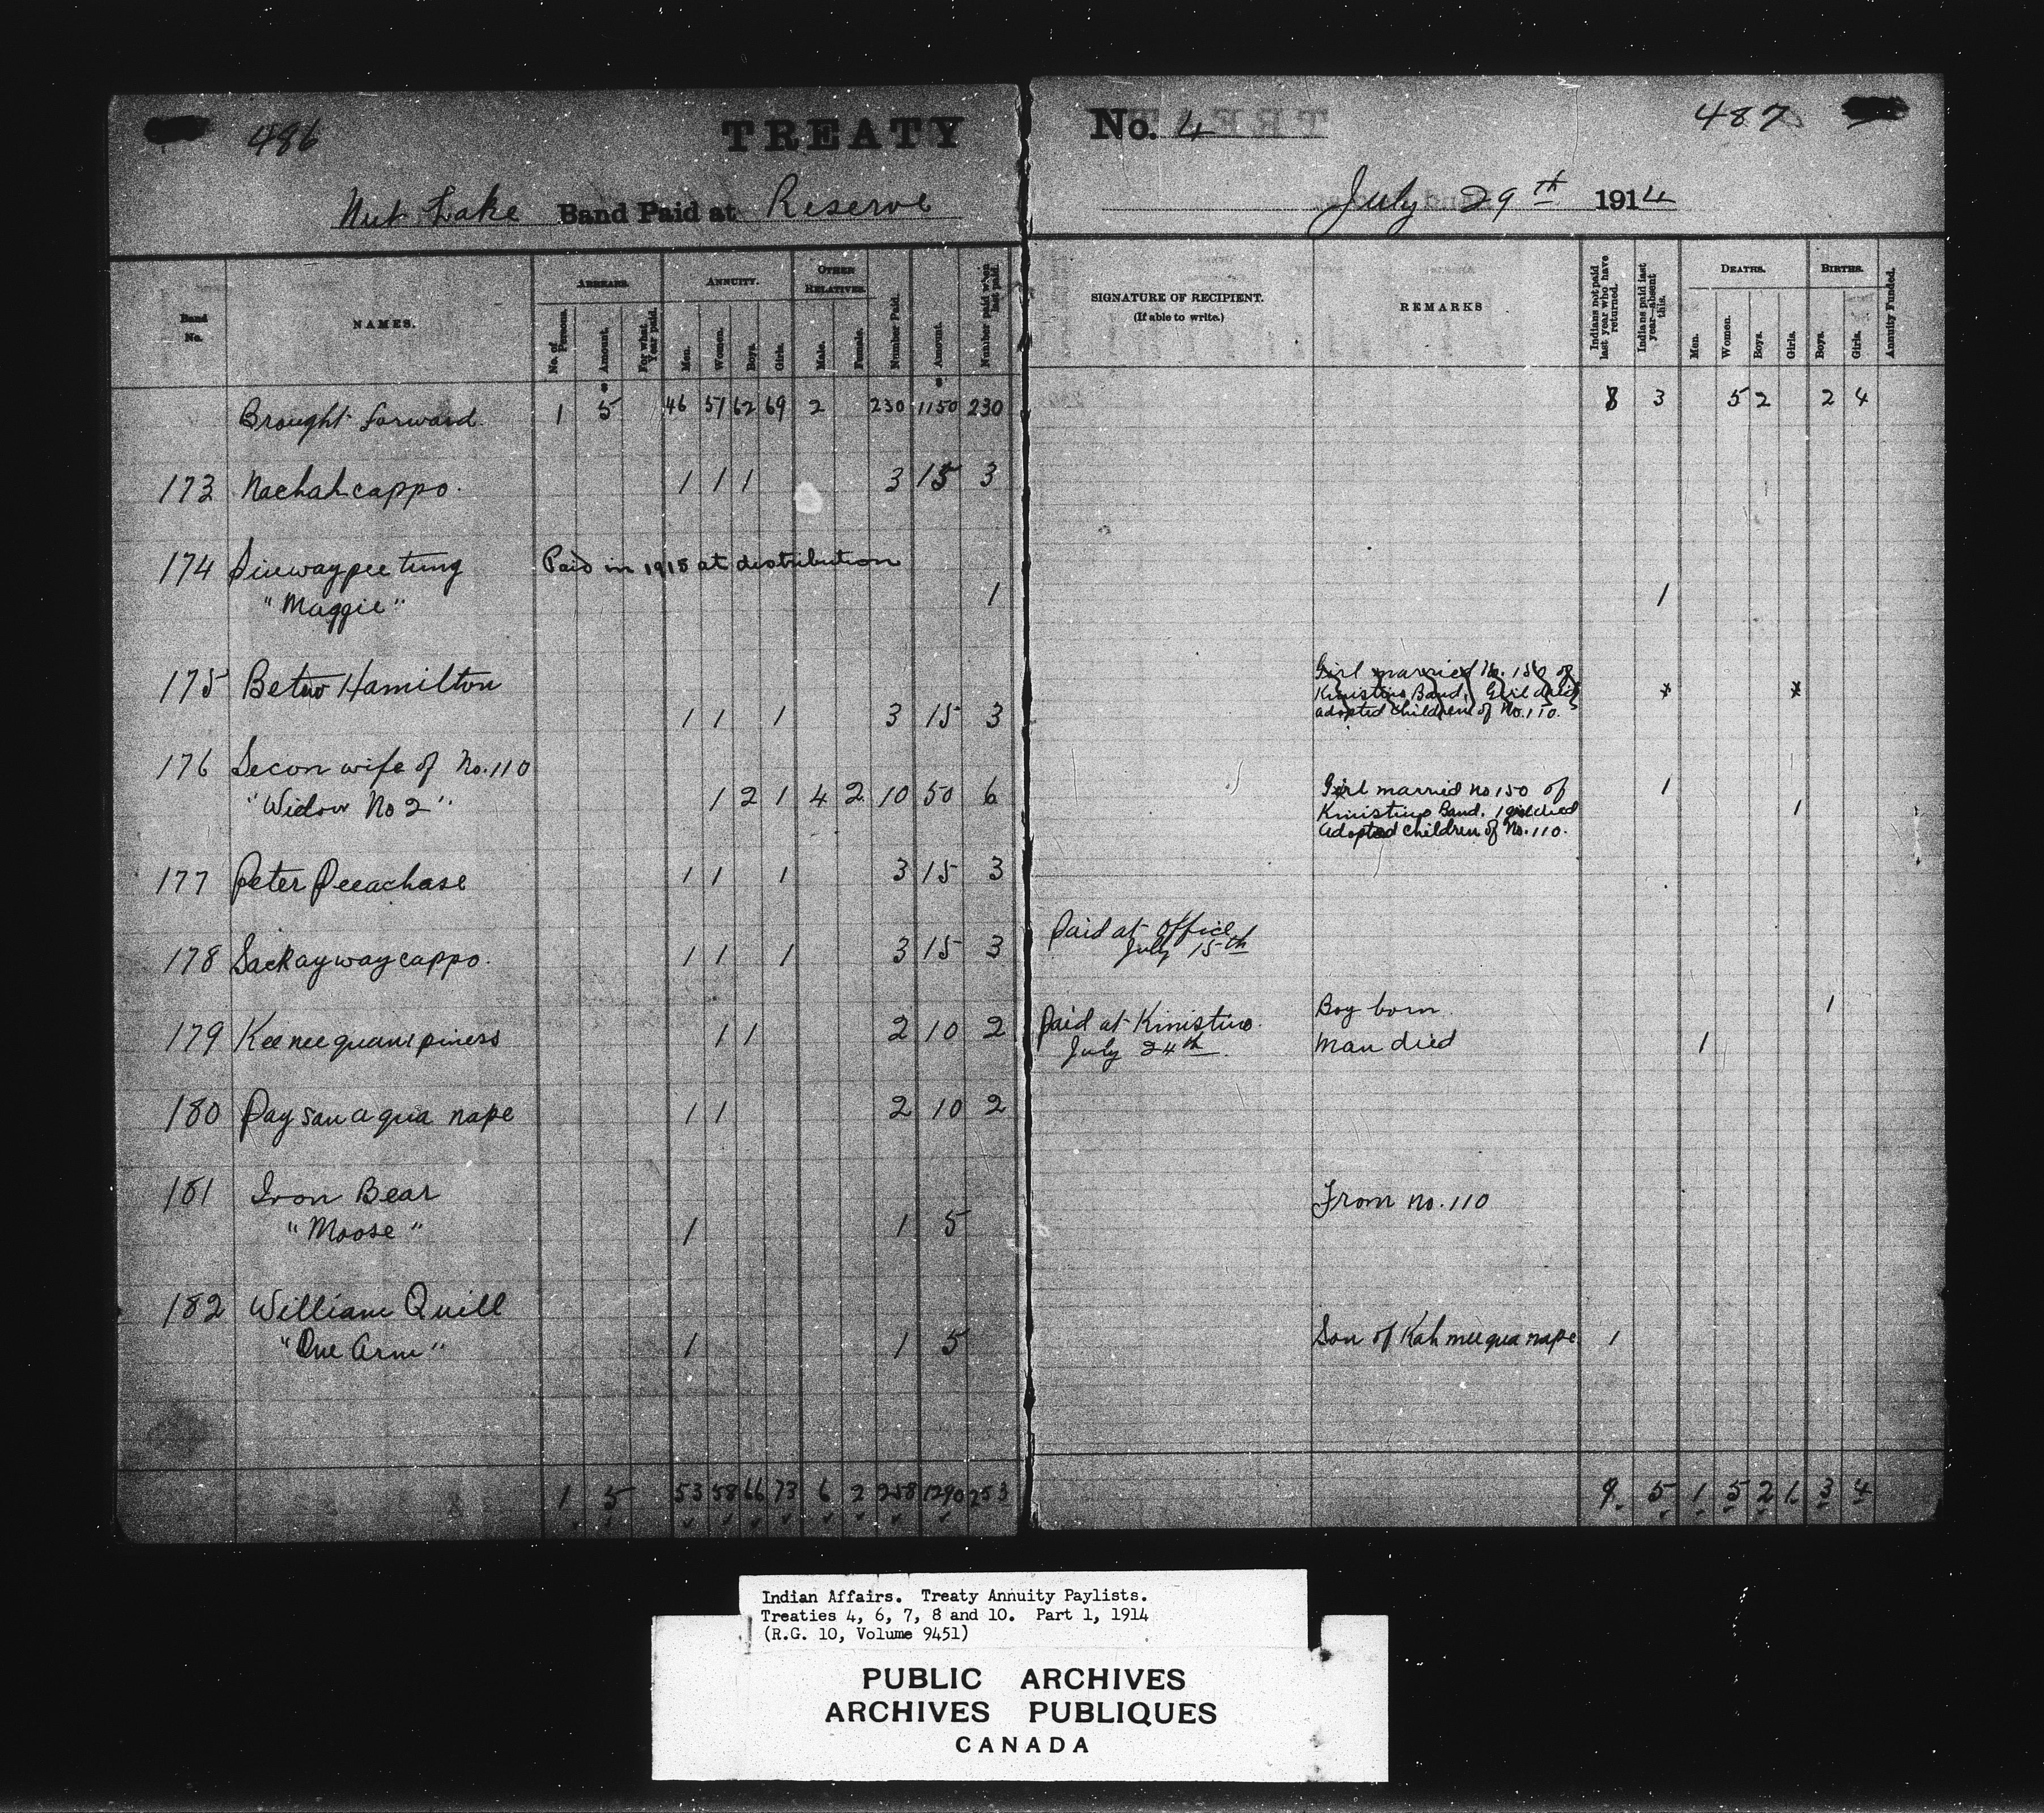 486
TREATY No. 4
487
Nut Lake Band Paid at Reserve
July 29th 1914
Band No.
NAMES.
ARREARS.
No. of Persons.
Amount.
For what Year paid.
ANNUITY.
Men.
Women.
Boys.
Girls.
OTHER RELATIVES.
Male.
Female.
Number Paid.
Amount.
Number paid when last paid.
SIGNATURE OF RECIPIENT.
(If able to write.)
REMARKS
Indians not paid last year who have returned.
Indians paid last year—absent this.
DEATHS.
Men.
Women.
Boys.
Girls.
BIRTHS.
Boys.
Girls.
Annuity Funded.
Brought forward 1 5 46 57 62 69 2 230 1150 230 8 3 5 2 2 4
173 Nachahcappo. 1 1 1 3 15 3
174 Paid in 1915 at distribution
"Maggie" 1 1
175 Hamilton
Girl married No. 150 of
Kinistino Band. Girl died
adopted children of No. 110.
x x
1 1 1 3 15 3
176 Secon wife of No. 110
"Widow No 2" 1 2 1 4 2 10 50 6
Girl married no 150 of
Kinistino Band. 1 girl died
adopted children of No. 110.
1
1
177 Peter Peeachase 1 1 1 3 15 3
178 Sackaywaycappo. 1 1 1 3 15 3
Paid at Office
July 15th
Boy born 1
179 Keeneequanipiness 1 1 2 10 2
Paid at Kinistino.
July 24th
Man died 1
180 Paysanaqua nape 1 1 2 10 2
181 Iron Bear
"Moose" 1 1 5
From no. 110
182 William Quill
"One Arm" 1 1 5
Son of Kahmeequanape 1
1 5 53 58 66 73 6 2 258 1290 253 9 5 1 5 2 1 3 4
Indian Affairs. Treaty Annuity Paylists.
Treaties 4, 6, 7, 8 and 10. Part 1, 1914
(R.G. 10, Volume 9451)
PUBLIC ARCHIVES
ARCHIVES PUBLIQUES
CANADA